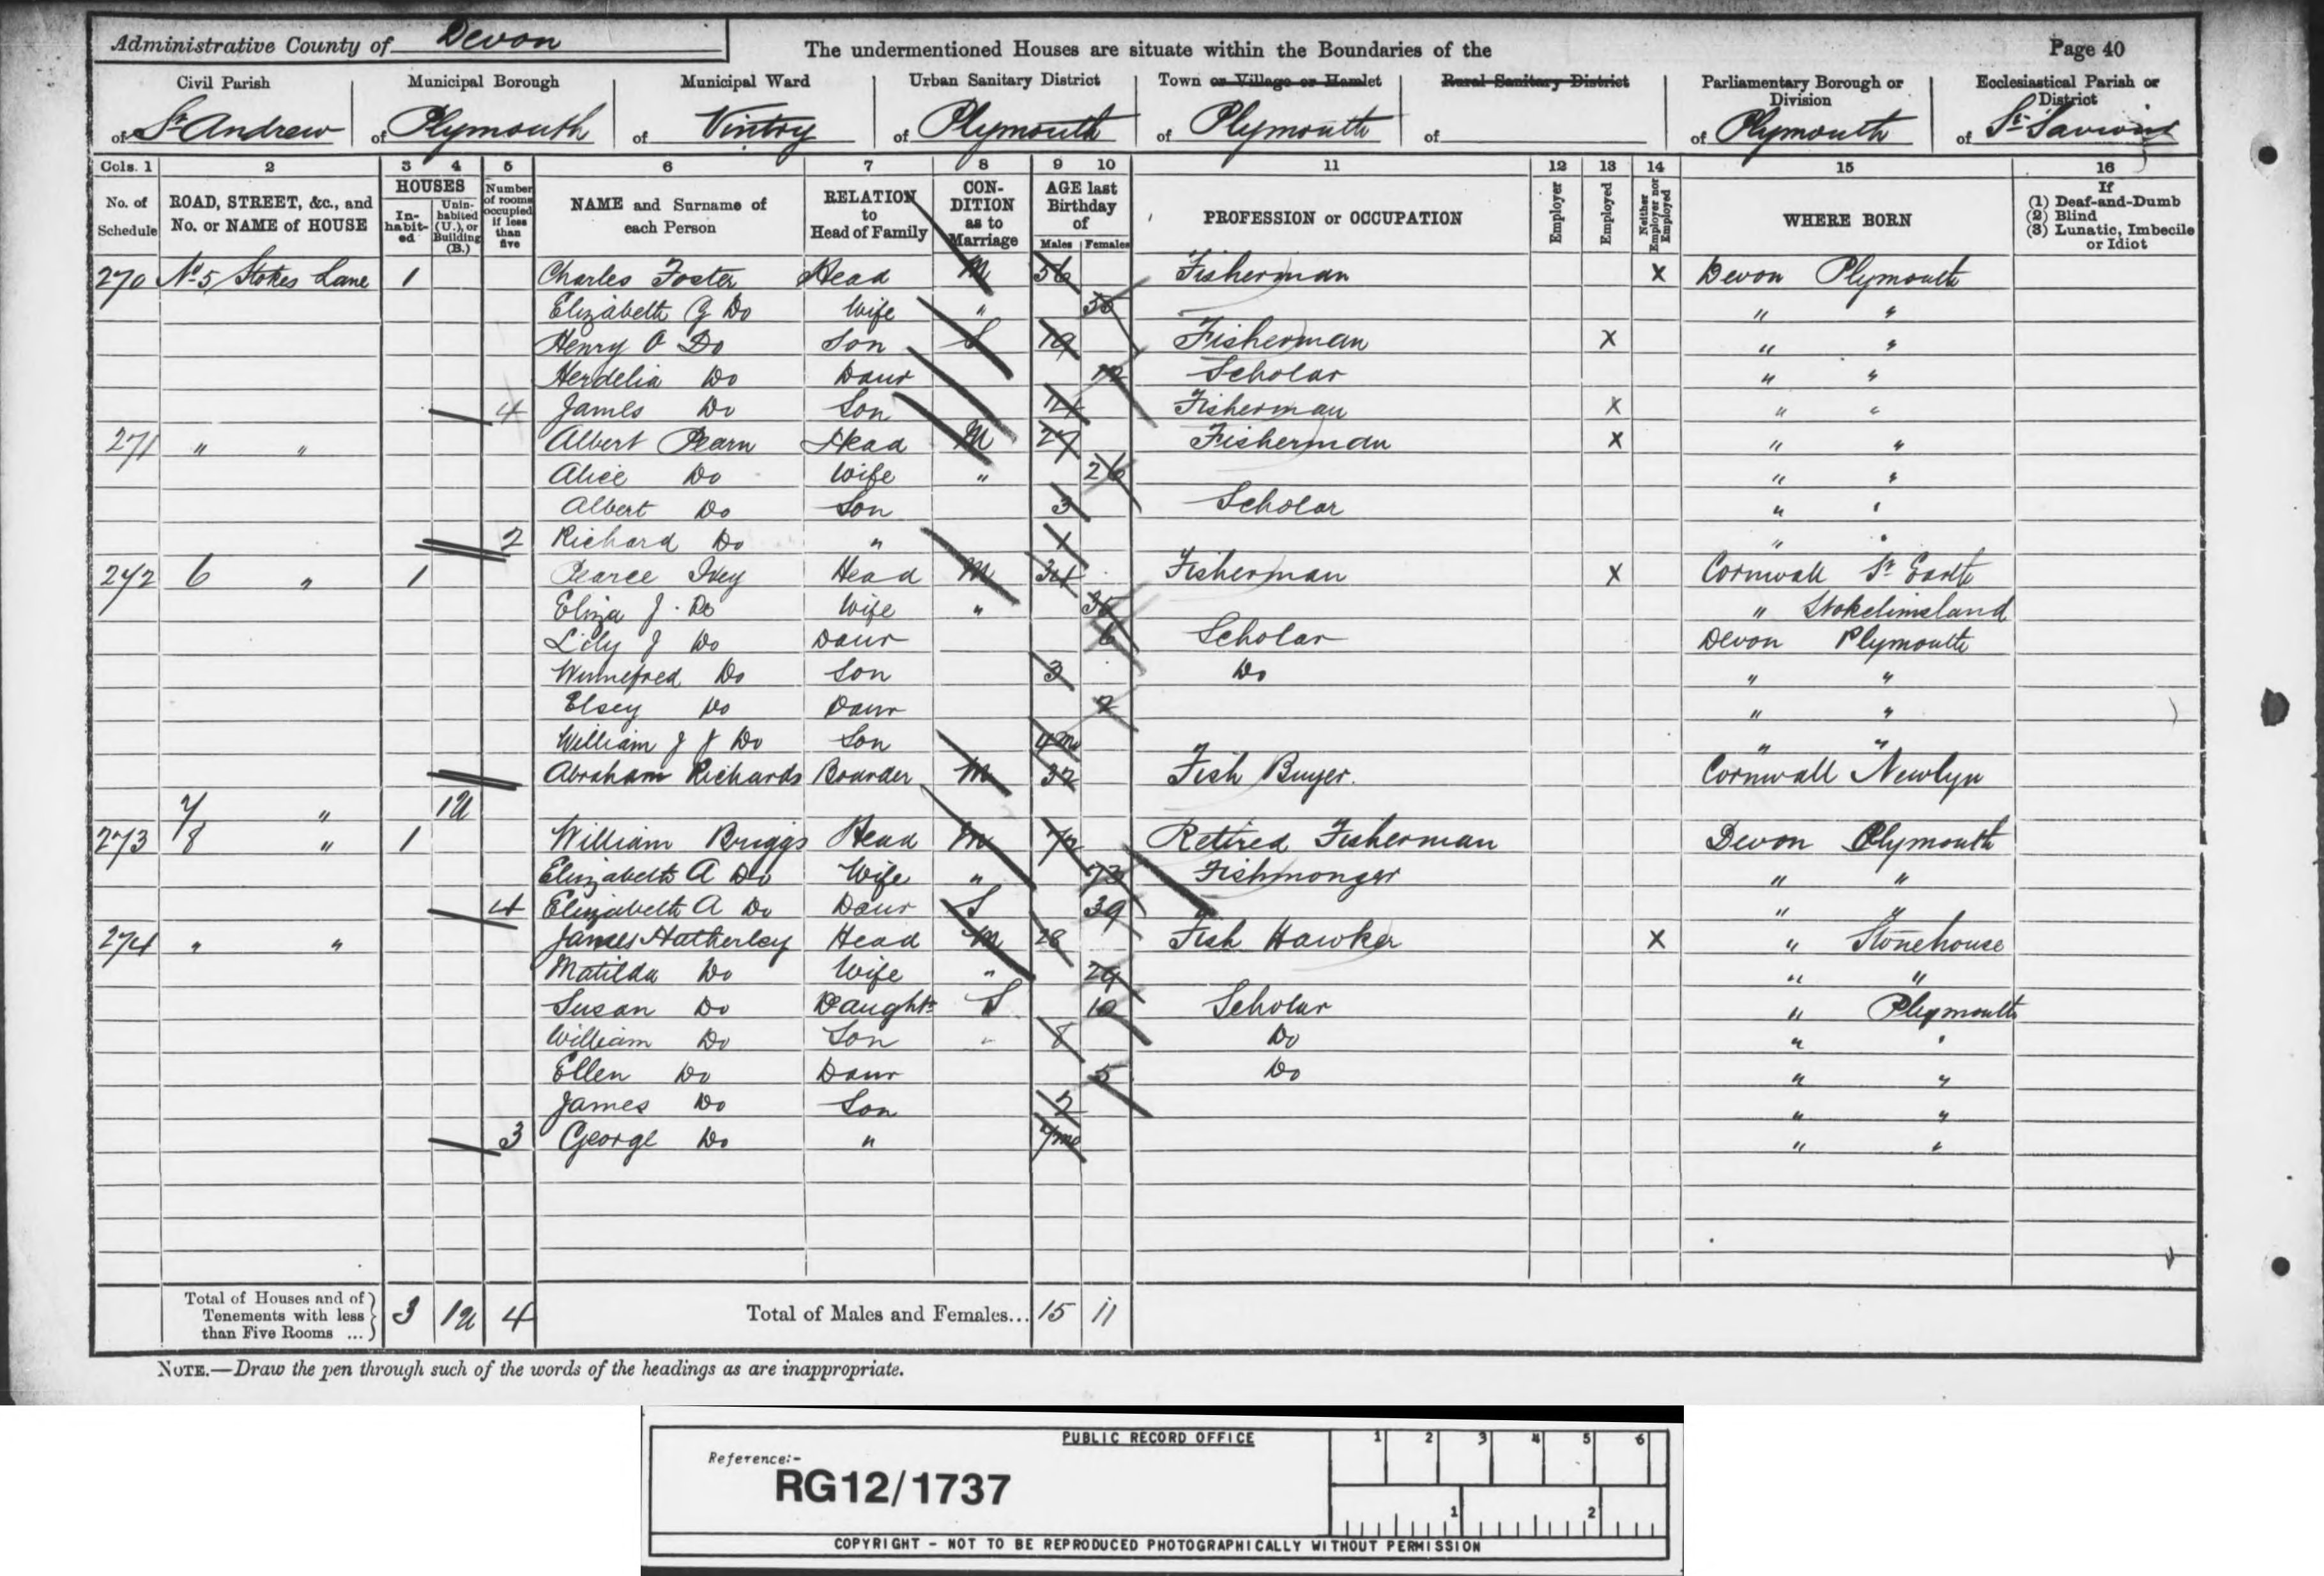 Administrative County of Devon The undermentioned Houses are situate within the Boundaries of the Page 40
Civil Parish Municipal Borough Municipal Ward Urban Sanitary District Town or Village or Hamlet Rural Sanitary District Parliamentary Borough or Division Ecclesiastical Parish or District
of St Andrew of Plymouth of Vintry of Plymouth of Plymouth of of Plymouth of St Saviours
Cols. 1 2 3 4 5 6 7 8 9 10 11 12 13 14 15 16
No. of Schedule ROAD, STREET, &c., and No. or NAME of HOUSE HOUSES In-habit-ed Unin-habited (U.), or Building (B.) Number of rooms occupied if less than five NAME and Surname of each Person RELATION to Head of Family CON-DITION as to Marriage AGE last Birthday of Males Females PROFESSION or OCCUPATION Employer Employed Neither Employer nor Employed WHERE BORN If (1) Deaf-and-Dumb (2) Blind (3) Lunatic, Imbecile or Idiot
270 No 5 Stokes Lane 1 Charles Foster Head M 56 Fisherman X Devon Plymouth
Elizabeth G Do Wife " " "
Henry O Do Son S 19 Fisherman X " "
Do Daur 12 Scholar " "
4 James Do Son 14 Fisherman X " "
271 " " Albert Pearn Head M 27 Fisherman X " "
Alice Do Wife " 26 " "
Albert Do Son 3 Scholar " "
2 Richard Do " 1 " "
272 6 " 1 Pearce Ivey Head M 34 Fisherman X Cornwall St Earth
Eliza J. Do Wife " " Stokelimsland
Lily J Do Daur 6 Scholar Devon Plymouth
Winnefred Do Son 3 Do " "
Elsey Do Daur 2 " "
William J J Do Son 4 mo " "
Abraham Richards Boarder M 37 Fish Buyer. Cornwall Newlyn
7 " 1U
273 8 " 1 William Briggs Head M Retired Fisherman Devon Plymouth
Elizabeth A Do Wife " 73 Fishmonger " "
4 Elizabeth A Do Daur S 39 " "
274 " " James Hatherley Head M 28 Fish Hawker X " Stonehouse
Matilda Do Wife " 29 " "
Susan Do Daughtr S 10 Scholar " Plymouth
William Do Son " 8 Do " "
Ellen Do Daur 5 Do " "
James Do Son 2 " "
3 George Do " 7 mo " "
Total of Houses and of Tenements with less than Five Rooms ... 3 1U 4 Total of Males and Females... 15 11
NOTE.—Draw the pen through such of the words of the headings as are inappropriate.
PUBLIC RECORD OFFICE 1 2 3 4 5 6
Reference:-
RG12/1737
1 2
COPYRIGHT - NOT TO BE REPRODUCED PHOTOGRAPHICALLY WITHOUT PERMISSION